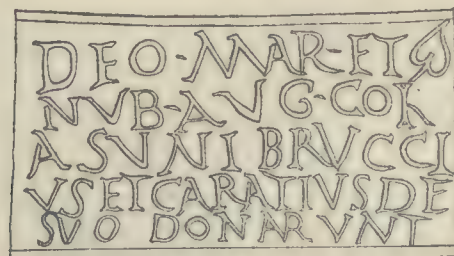 DEO-MAR-ET
NVB-AVG-COK
ASVNI BRVCCI
VS ET CARATIVS DE
SVO DONARVNT